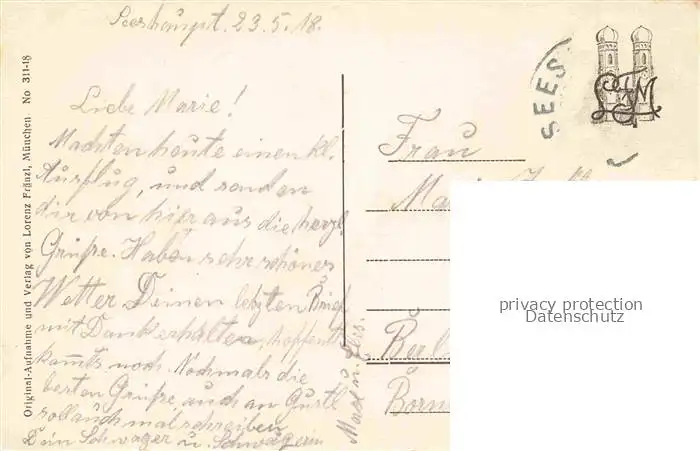 Seeshaupt. 23.5.18.
Liebe Marie!
Machten heute einen kl.
Ausflug, und senden
dir von hier aus die herzl.
Grüße. Haben sehr schönes
Wetter Deinen letzten Brief
mit Dank erhalten, hoffentl.
kommts noch. Nochmals die
besten Grüße auch an Gustl
soll auch mal schreiben
Dein Schwager u. Schwägerin
Max u. Elis.
Frau
Berl
Born
SEES
Original-Aufnahme und Verlag von Lorenz Fränzl, München No 311-18
privacy protection
Datenschutz